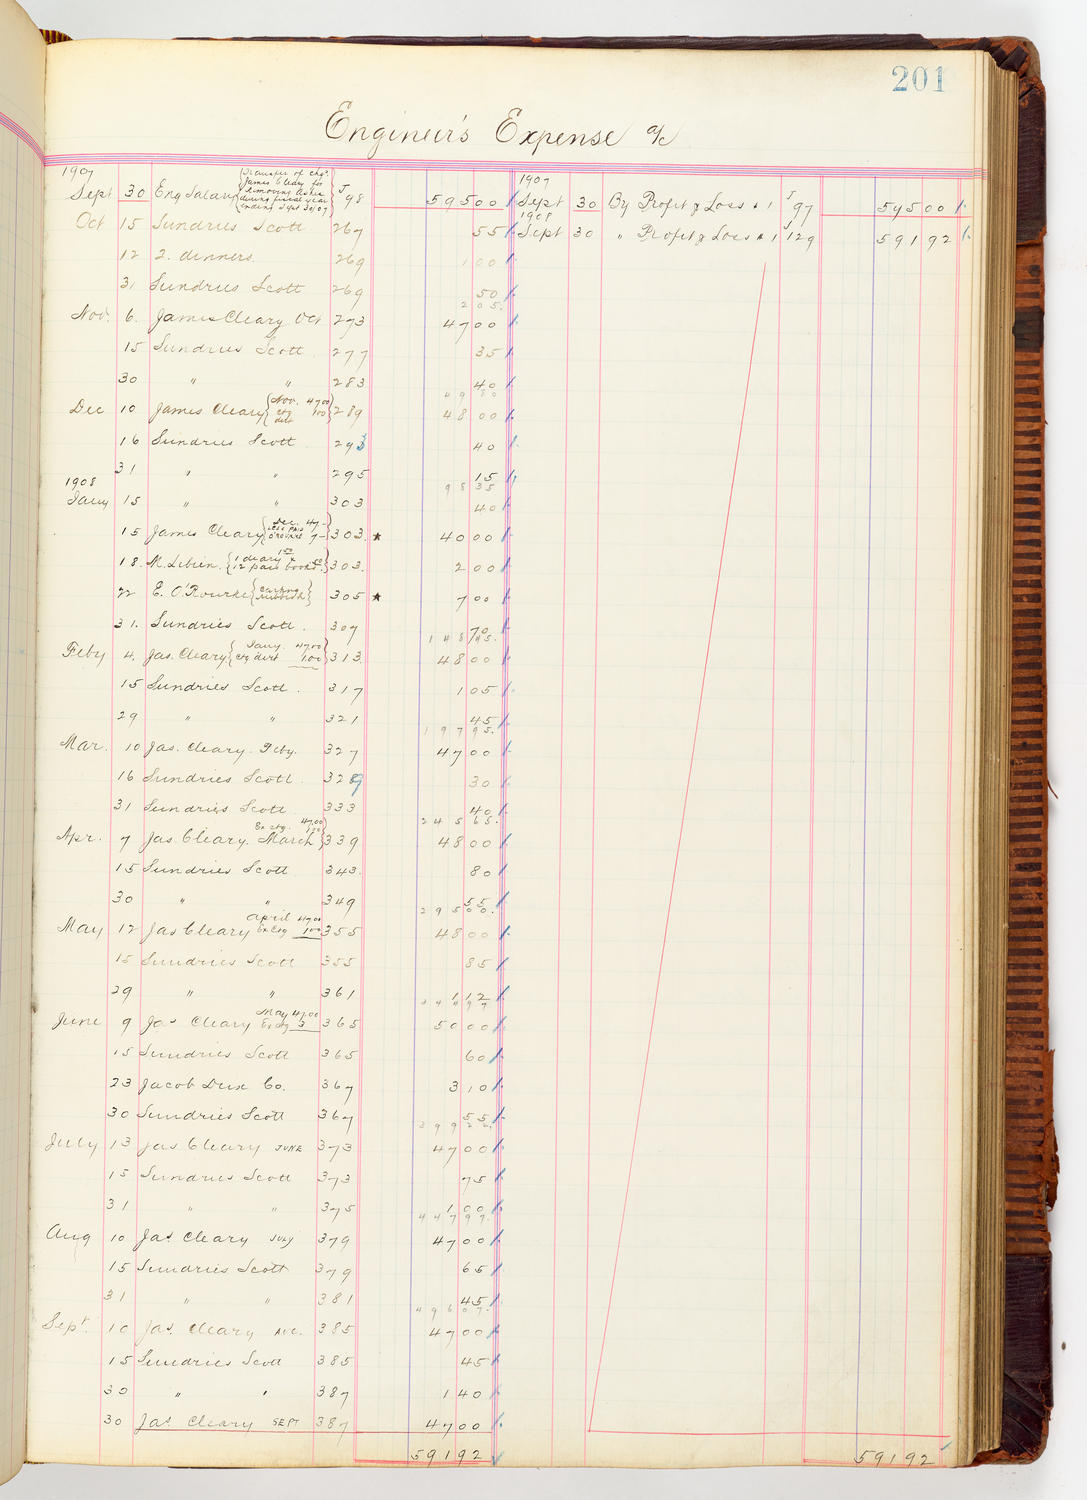 201
Engineer's Expense a/c
1907 1907
Sept 30 Eng Salary {Transfer of chgs. James Cleary for removing ashes during fiscal year ending Sept 30/07} J 98 595 00 Sept 30 By Profit & Loss a 1 J 97 595 00
1908
Oct 15 Sundries Scott 267 55 Sept 30 " Profit & Loss a 1 J 129 591 92
12 2. dinners. 269 1 00
31 Sundries Scott 269 50
2 05.
Nov. 6. James Cleary Oct 273 47 00
15 Sundries Scott 277 35
30 " " 283 40
49 80
Dec 10 James Cleary {Nov. 47.00 ctg dirt 1.00} 289 48 00
16 Sundries Scott 293 40
31 " " 295 15
98 35
1908
Jany 15 " " 303 40
15 James Cleary {Dec. 47- less paid O'Rourke 7-} 303. * 40 00
18. M. Libien. {1 diary 1.50 & 12 pass books .50} 303. 2 00
22 E. O'Rourke {carting rubbish} 305 * 7 00
31. Sundries Scott. 307 70
148 45.
Feby 4. Jas. Cleary {Jany. 47.00 ctg dirt 1.00} 313. 48 00
15 Sundries Scott. 317 1 05
29 " " 321 45
197 95.
Mar. 10 Jas. Cleary. Feby. 327 47 00
16 Sundries Scott. 329 30
31 Sundries Scott. 333 40
245 65.
Apr. 7 Jas. Cleary. March {47.00 Ex ctg. 1.00} 339 48 00
15 Sundries Scott 343. 80
30 " " 349 55
295 00.
May 12 Jas Cleary April 47.00 Ex Ctg 1.00 355 48 00
15 Sundries Scott 355 85
29 " " 361 1 12
344 97
June 9 Jas Cleary May 47.00 Ex Ctg 3 365 50 00
15 Sundries Scott 365 60
23 Jacob Dux Co. 367 3 10
30 Sundries Scott 367 55
399 22.
July 13 Jas Cleary JUNE 373 47 00
15 Sundries Scott 373 75
31 " " 375 1 00
447 97.
Aug 10 Jas. Cleary JULY 379 47 00
15 Sundries Scott 379 65
31 " " 381 45
496 07.
Sept. 10 Jas. Cleary AUG. 385 47 00
15 Sundries Scott 385 45
30 " " 387 1 40
30 Jas. Cleary SEPT 387 47 00
591 92 591 92